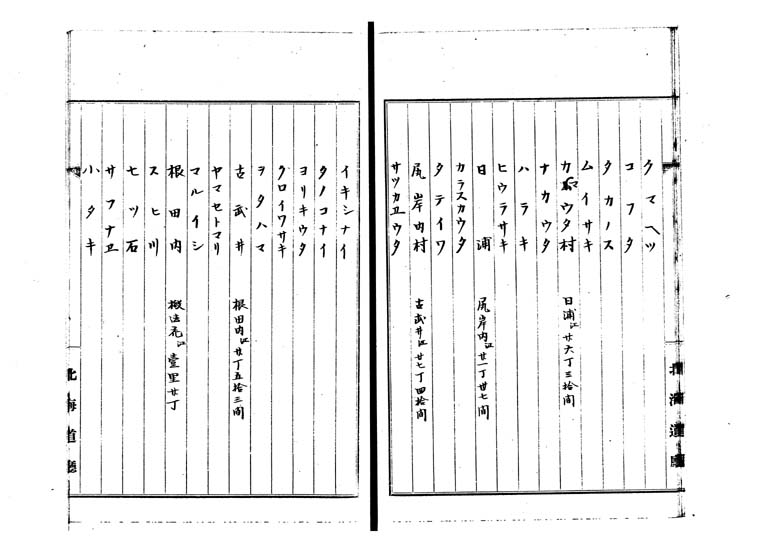 クマヘツ
コフタ
タカノス
ムイサキ
カマウタ村 日浦江廿六丁三拾間
ナカウタ
ハラキ
ヒウラサキ
日浦 尻岸内江廿一丁廿七間
カラスカウタ
タテイワ
尻岸内村 古武井江廿七丁四拾間
サツカヱウタ
北海道廳
イキシナイ
タノコナイ
ヨリキウタ
クロイワサキ
ヲタハマ
古武井 根田内江廿丁五拾三間
ヤマセトマリ
マルイシ
根田内 椴法花江壹里廿丁
スヒ川
七ツ石
サフナヱ
小タキ
北海道廳